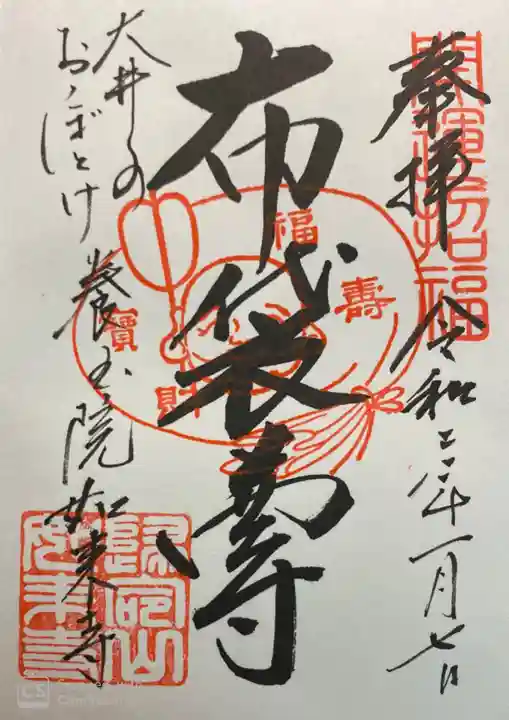 奉拝
開運招福
令和三年一月七日
布袋尊
福
壽
寶
財
大井の
おゝぼとけ
養玉院如来寺
CS CamScanner